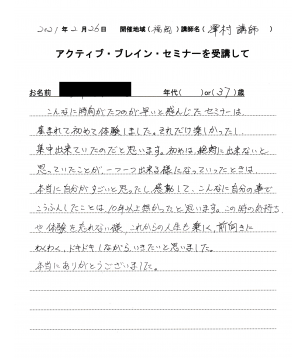 2021年2月26日 開催地域（福岡）講師名（澤村 講師）
アクティブ・ブレイン・セミナーを受講して
お名前 年代（ ）or（37）歳
こんなに時間がたつのが早いと感じたセミナーは、
産まれて初めて体験しました。それだけ楽しかったし、
集中出来ていたのだと思います。初めは、絶対に出来ないと
思っていたことが、一つ一つ出来る様になっていったときは、
本当に自分がすごいと思ったし、感動して、こんなに自分の事で
こうふんしたことは、10年以上前かったと思います。この時のお持ち
や体験を忘れない様、これからの人生も楽しく、前向きに
わくわく、ドキドキしながらいきたいと思いました。
本当にありがとうございました。